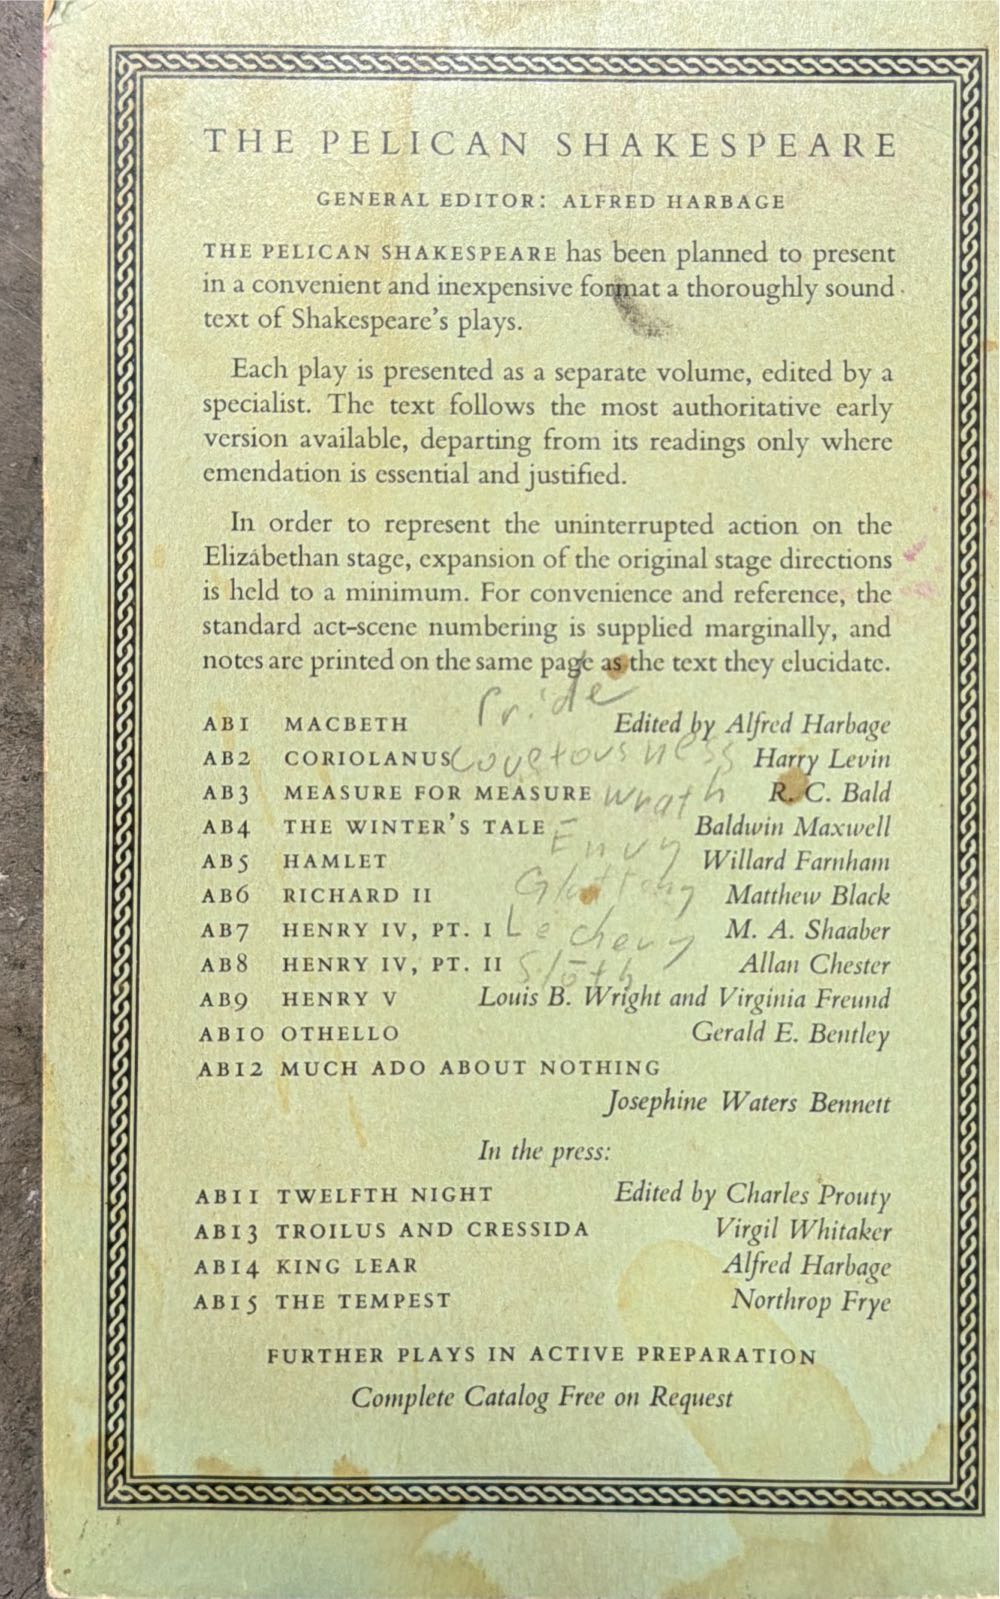 THE PELICAN SHAKESPEARE
GENERAL EDITOR: ALFRED HARBAGE
THE PELICAN SHAKESPEARE has been planned to present
in a convenient and inexpensive format a thoroughly sound
text of Shakespeare's plays.
Each play is presented as a separate volume, edited by a
specialist. The text follows the most authoritative early
version available, departing from its readings only where
emendation is essential and justified.
In order to represent the uninterrupted action on the
Elizabethan stage, expansion of the original stage directions
is held to a minimum. For convenience and reference, the
standard act-scene numbering is supplied marginally, and
notes are printed on the same page as the text they elucidate.
Pride
AB1 MACBETH Edited by Alfred Harbage
AB2 CORIOLANUS Covetousness Harry Levin
AB3 MEASURE FOR MEASURE Wrath R. C. Bald
AB4 THE WINTER'S TALE Baldwin Maxwell
Envy
AB5 HAMLET Willard Farnham
Gluttony
AB6 RICHARD II Matthew Black
AB7 HENRY IV, PT. I Lechery M. A. Shaaber
AB8 HENRY IV, PT. II Sloth Allan Chester
AB9 HENRY V Louis B. Wright and Virginia Freund
AB10 OTHELLO Gerald E. Bentley
AB12 MUCH ADO ABOUT NOTHING
Josephine Waters Bennett
In the press:
AB11 TWELFTH NIGHT Edited by Charles Prouty
AB13 TROILUS AND CRESSIDA Virgil Whitaker
AB14 KING LEAR Alfred Harbage
AB15 THE TEMPEST Northrop Frye
FURTHER PLAYS IN ACTIVE PREPARATION
Complete Catalog Free on Request